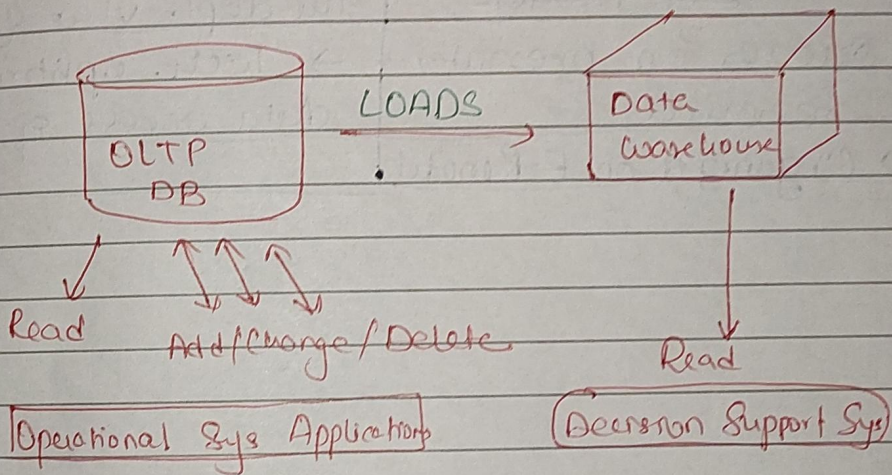 OLTP
DB
LOADS
Data
Warehouse
Read
Add/Change/Delete
Read
Operational Sys Applications
Decision Support Sys